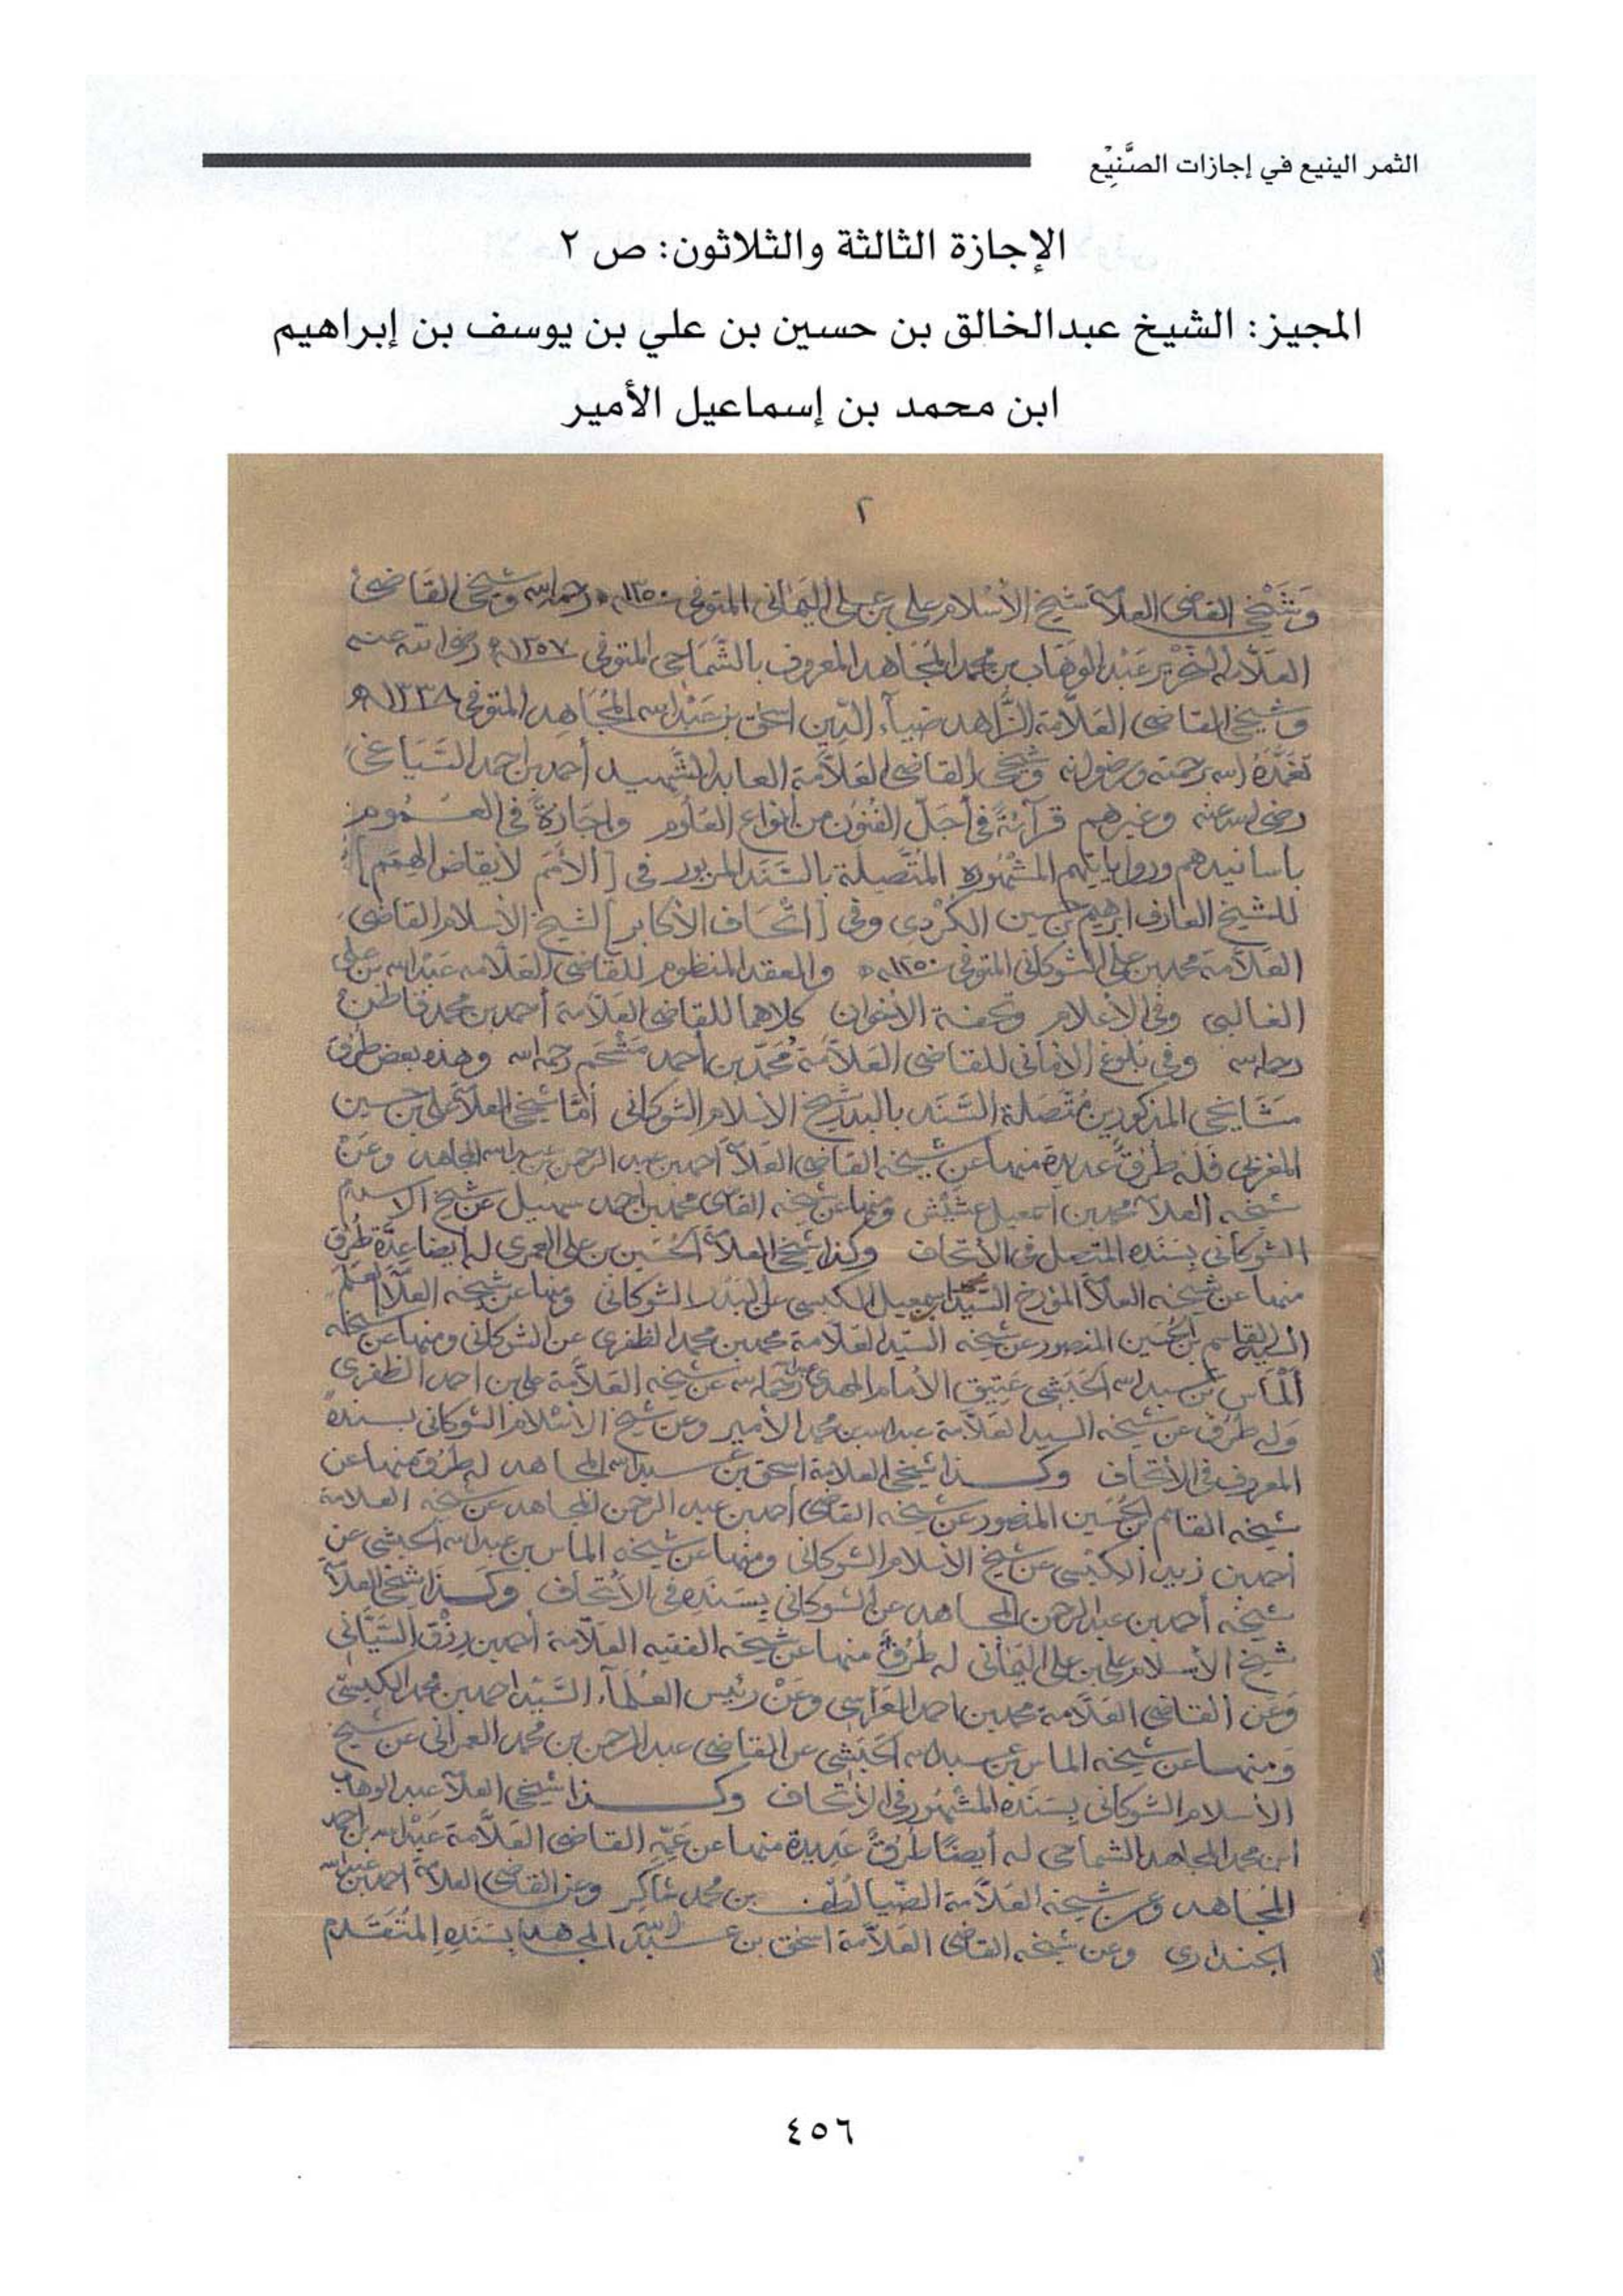 الثمر الينيع في إجازات الصَّنِيْع
الإجازة الثالثة والثلاثون: ص ٢
المجيز: الشيخ عبدالخالق بن حسين بن علي بن يوسف بن إبراهيم
ابن محمد بن إسماعيل الأمير
٢
وَشَيْخي القاضي العلامة شيخ الأسلام علي بن علي اليَمَاني المتوفى ١٣٥٠ه رحمه الله وشيخي القَاضي
العَلّامه عَبْد الوهّاب بن محمد المُجَاهد المعروف بالشَّمَاحي المتوفى ١٣٥٧ه رضي الله عنه
وشيخي القاضي العَلّامة الزَّاهد ضيآء الدّين اسحٰق بن عَبْد الله المُجَاهِد المتوفى ١٣٣٨ه
تغمَّدَهُ الله برحمته ورضوانه وشيخي القاضي العَلاّمة العابد الشهيد أحمد بن احمد السَّيَاغي
رضي الله عنه وغيرهم قرآءَةً في أجَلّ الفُنُون من أنواع العُلُوم وإجَازةً في العُـمُوم
بأسانيدهم ورواياتهم المشْهُوره المُتَّصِلة بالسَّنَد المزبور في [الأمَم لأيقاض الهِمَم]
للشيخ العارف ابرهيم بن حسين الكُرْدي وفي [اتْحَاف الأكابر] لشيخ الأسلام القاضي
العَلاَّمة محمد بن علي الشوكاني المتوفى ١٢٥٠ه والعقد المنظوم للقاضي العَلاّمه عَبْد الله بن علي
الغالبي وفي الأعْلام وتحفة الأخوان كلاهما للقاضي العَلاّمة أحمد بن محمد قاطن
رحمه الله وفي بُلوغ الأماني للقاضي العَلاّمَة مُحَمّد بن أحمد مَشْحَم رحمه الله وهذه بعض طُرُق
مَشَايخي المذكورين مُتَّصَلة السَّنَد بالبدر شيخ الأسلام الشوكاني أمّا شيخي العلاّمة علي بن حسين
المغربي فَلَهُ طُرُقٌ عديدة منها عن شيخه القاضي العَلاّمة أحمد بن عبد الرحمن بن عبد الله المجاهد وعَنْ
شيخه العلاّمة محمد بن اسمعيل عشَيْش ومنها عن شيخه القاضي محمد بن احمد سهيل عن شيخ الاسلام
الشوكاني بسَنَده المتصل في الأتحاف وكذا شيخي العلاّمة الحُسَين بن علي العمري له أيضا عِدّة طُرُق
منها عن شيخه العلاّمة المؤرخ السَّيّد محمد بن اسمعيل الكبسي عن البَدْر الشوكاني ومنها عن شيخه العَلاّمة العَلَم
السيد القاسم بن الحُسَين المنصور عن شيخه السيّد العَلاّمة محمد بن محمد الظفري عن الشوكاني ومنها عن شيخه
ألْمَاس بن عبد الله الحَبَشي عَتِيق الأمام المهدي رحمه الله عن شيخه العَلاّمة علي بن احمد الظفري
وله طُرُق عن شيخه السيد العَلاّمة عبد الله بن محمد الأمير وعن شيخ الأسْلام الشوكاني بسنده
المعروف في الأتحاف وكـذا شيخي العلامة اسحق بن عبد الله المجاهد له طُرُق منها عن
شيخه القاسم بن الحُسَين المنصور عن شيخه القاضي أحمد بن عبد الرحمن المجاهد عن شيخه العلامة
أحمد بن زيد الكبْسي عن شيخ الأسلام الشوكاني ومنها عن شيخه الماس بن عبد الله الحبشي عن
شيخه أحمد بن عبد الرحمن المجاهد عن الشوكاني بِسَنَدِهِ في الأتْحَاف وكـذا شيخي العلاّمة
شيخ الأسلام علي بن علي اليَمَاني له طُرُقٌ منها عن شيخه الفقيه العَلاّمة أحمد بن رِزْق السَّيَّاني
وَعَن القاضي العَلاّمة محمد بن احمد العَرَاسي وعَنْ رئيس العُلَمآء السَّيّد احمد بن محمد الكبسي
وَمنها عن شيخه الماس بن عبد الله الحَبَشِي عن القاضي عبد الرحمن بن محمد العمراني عن شيخ
الأسلام الشوكاني بِسَنَده المَشْهُور في الأتحاف وكـذا شيخي العلاّمة عبد الوهاب
ابن محمد المجاهد الشماحي له أيضًا طُرُقٌ عَدِيدة منها عن عَمِّهِ القاضي العَلاّمة عَبْد الله بن احمد
المُجَاهد وعن شيخه العَلاَّمة الضّيا لُطْف بن محمد شاكِر وعن القاضي العلاّمة احمد بن عبد الله
الجنداري وعن شيخه القاضي العَلاّمة اسحٰق بن عَبْد الله المجاهد بسَنَدِهِ المُتَقَدم
٤٥٦